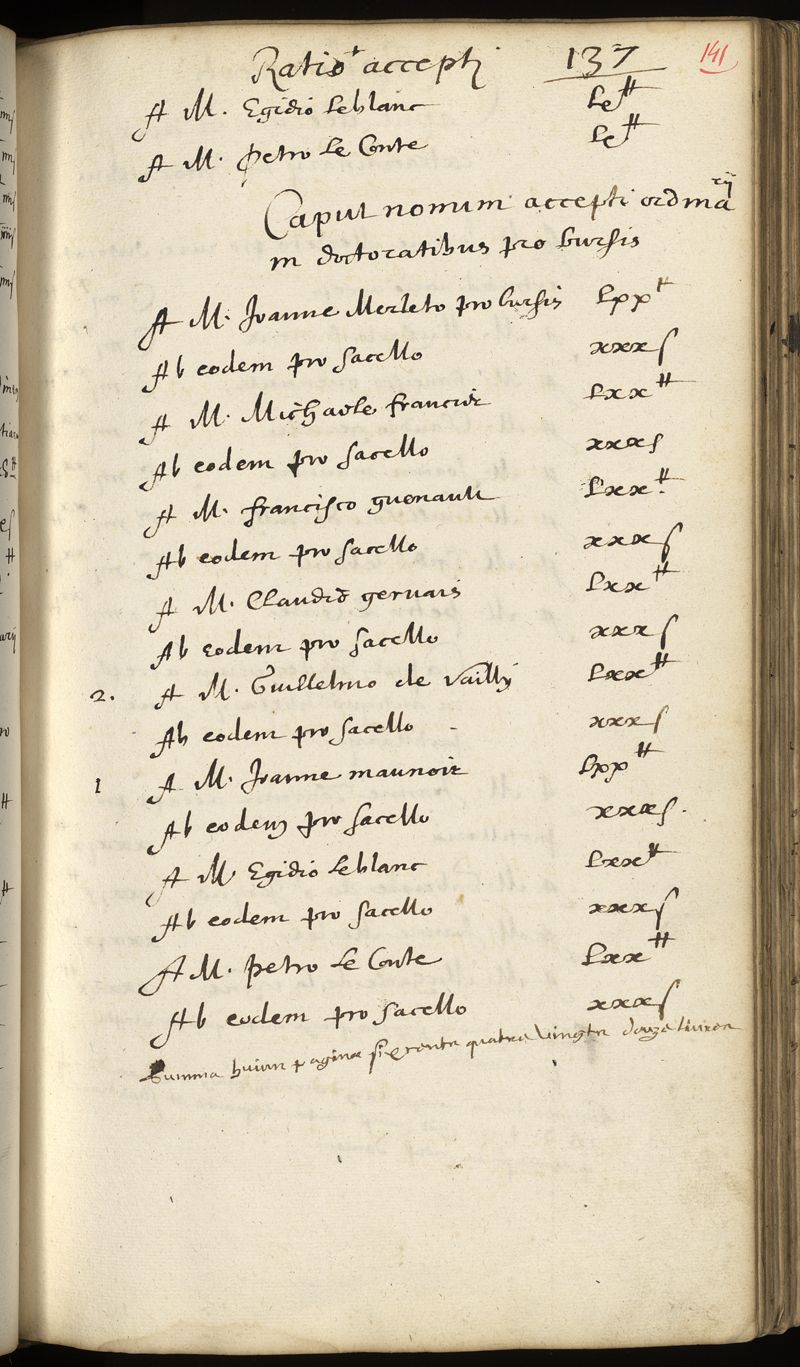 Ratio accepti 137 141
A M. Egidio Leblanc Lx ^tt
A M. Petro Le Conte Lx ^tt
Caput nonum accepti ordina^rij
in doctoratibus pro bursis
A M. Joanne Merleto pro bursis Lxx ^tt
Ab eodem pro sacello xxx s
A M. Michaele francier Lxx ^tt
Ab eodem pro sacello xxx s
A M. francisco guenault Lxx ^tt
Ab eodem pro sacello xxx s
A M. Claudio gervais Lxx ^tt
Ab eodem pro sacello xxx s
2. A M. Guillelmo de Vailly Lxx ^tt
Ab eodem pro sacello - xxx s
1 A M. Joanne maunoir Lxx ^tt
Ab eodem pro sacello xxx s.
A M. Egidio Leblanc Lxx ^tt
Ab eodem pro sacello xxx s
A M. Petro Le Conte Lxx ^tt
Ab eodem pro sacello xxx s
Summa huius paginae six cents quatre vingts douze livres